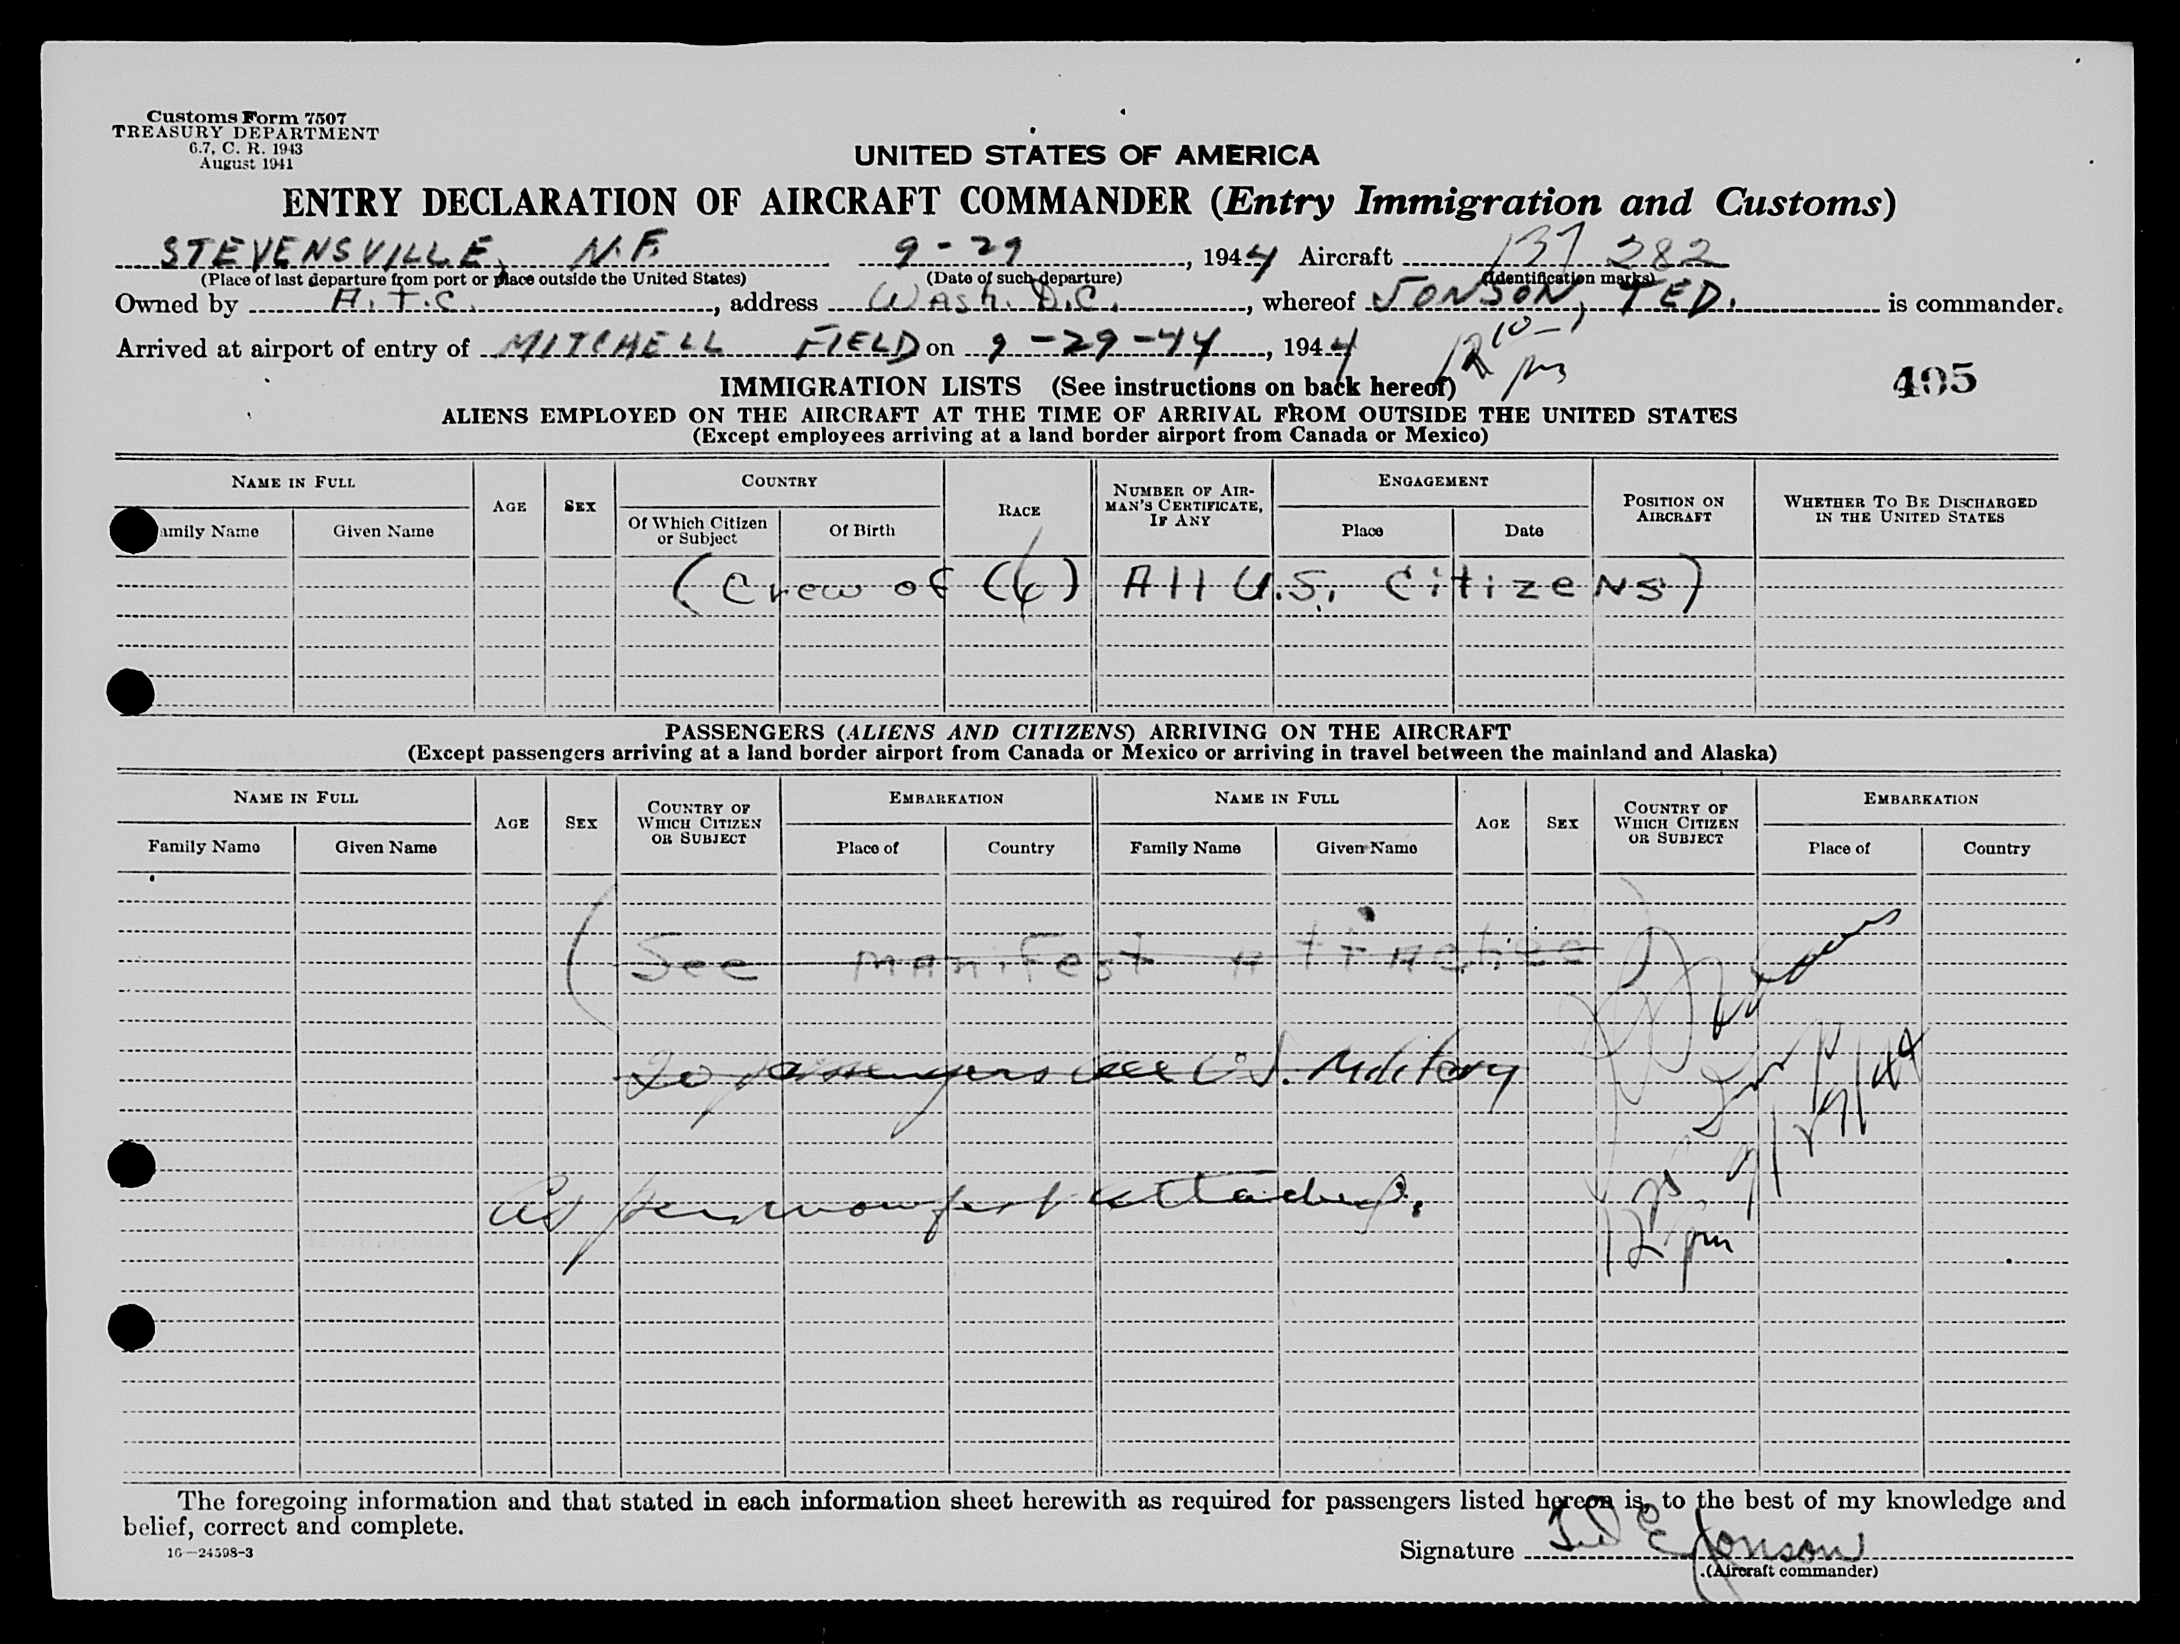 Customs Form 7507
TREASURY DEPARTMENT
6.7, C. R. 1943
August 1941
UNITED STATES OF AMERICA
ENTRY DECLARATION OF AIRCRAFT COMMANDER (Entry Immigration and Customs)
STEVENSVILLE, N.F. 9-29, 1944 Aircraft 137 282
(Place of last departure from port or place outside the United States) (Date of such departure) (Identification marks)
Owned by A.T.C., address Wash. D.C., whereof JONSON, TED. is commander.
Arrived at airport of entry of MITCHELL FIELD on 9-29-44, 1944
IMMIGRATION LISTS (See instructions on back hereof) 12 pm
405
ALIENS EMPLOYED ON THE AIRCRAFT AT THE TIME OF ARRIVAL FROM OUTSIDE THE UNITED STATES
(Except employees arriving at a land border airport from Canada or Mexico)
NAME IN FULL AGE SEX COUNTRY RACE NUMBER OF AIRMAN'S CERTIFICATE, IF ANY ENGAGEMENT POSITION ON AIRCRAFT WHETHER TO BE DISCHARGED IN THE UNITED STATES
amily Name Given Name Of Which Citizen or Subject Of Birth Place Date
(Crew of (6) All U.S. Citizens)
PASSENGERS (ALIENS AND CITIZENS) ARRIVING ON THE AIRCRAFT
(Except passengers arriving at a land border airport from Canada or Mexico or arriving in travel between the mainland and Alaska)
NAME IN FULL AGE SEX COUNTRY OF WHICH CITIZEN OR SUBJECT EMBARKATION NAME IN FULL AGE SEX COUNTRY OF WHICH CITIZEN OR SUBJECT EMBARKATION
Family Name Given Name Place of Country Family Name Given Name Place of Country
(See manifest attached)
20 passengers all U.S. Military
9/29/44
as per manifest attached.
12 pm
The foregoing information and that stated in each information sheet herewith as required for passengers listed hereon is, to the best of my knowledge and
belief, correct and complete.
16—24598-3
Signature Ted E Jonson
(Aircraft commander)